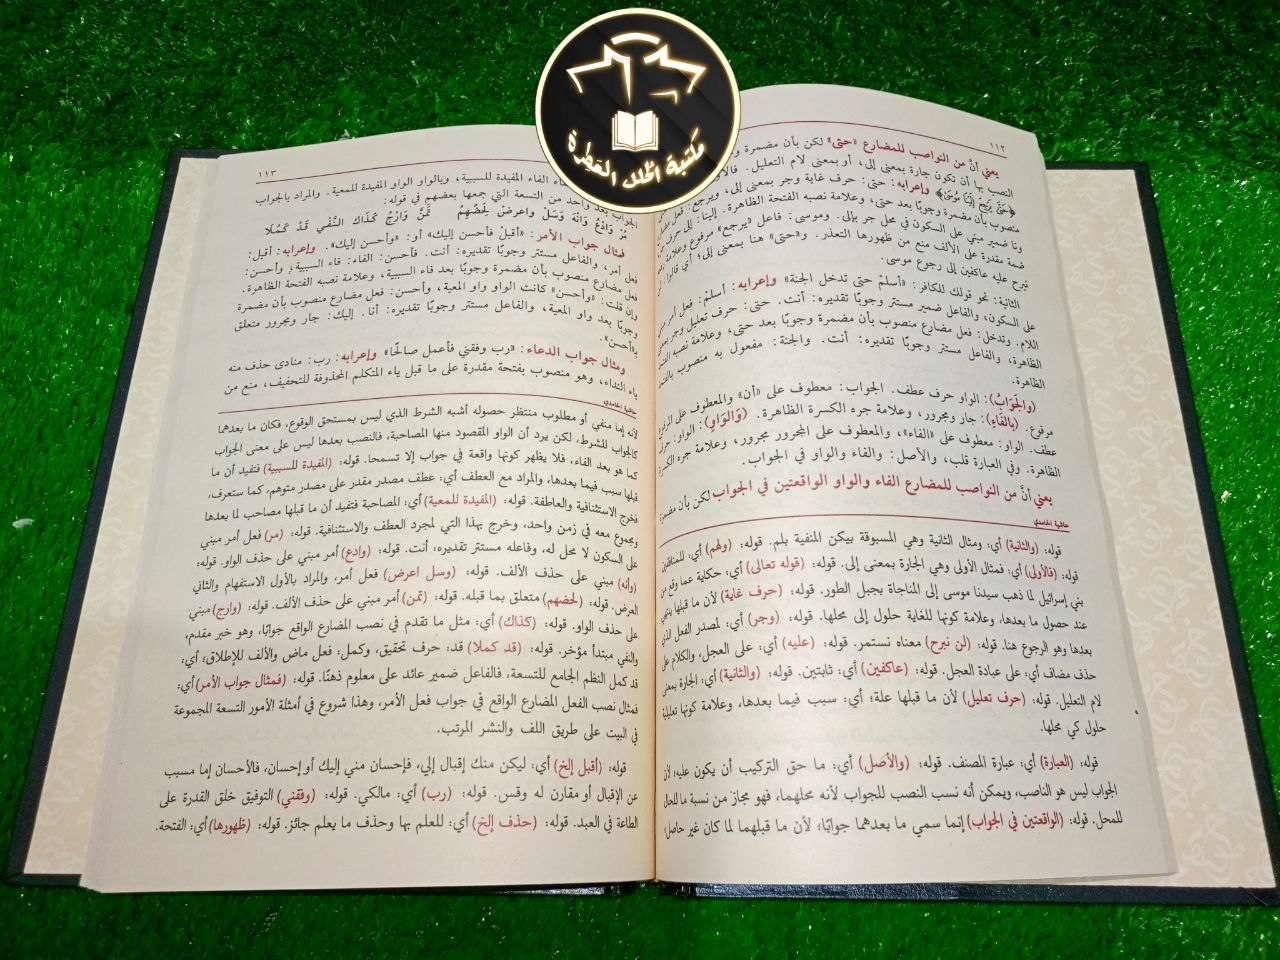 مكتبة الحلل العطرة
١١٢
يعني أنَّ من النواصب للمضارع «حتى» لكن بأن مضمرة
النصب بها أن تكون جارة بمعنى إلى، أو بمعنى لام التعليل.
﴿حَتَّىٰ يَرْجِعَ إِلَيْنَا مُوسَىٰ﴾ وإعرابه: حتى: حرف غاية وجر بمعنى إلى، ويرجع: فعل
منصوب بأن مضمرة وجوبًا بعد حتى، وعلامة نصبه الفتحة الظاهرة. إلينا: إلى حرف
ونا ضمير مبني على السكون في محل جر بإلى. وموسى: فاعل «يرجع» مرفوع وعلامة
ضمة مقدرة على الألف منع من ظهورها التعذر. و«حتى» هنا بمعنى إلى؛ أي قالوا:
نبرح عليه عاكفين إلى رجوع موسى.
الثانية: نحو قولك للكافر: «أسلمْ حتى تدخل الجنة» وإعرابه: أسلم: فعل أمر مبني
على السكون، والفاعل ضمير مستتر وجوبًا تقديره: أنت. حتى: حرف تعليل وجر
اللام. وتدخل: فعل مضارع منصوب بأن مضمرة وجوبًا بعد حتى، وعلامة نصبه
الظاهرة، والفاعل مستتر وجوبًا تقديره: أنت. والجنة: مفعول به منصوب
الظاهرة.
(والجَوَابُ): الواو حرف عطف. الجواب: معطوف على «أن» والمعطوف على
مرفوع. (بِالفَاءِ): جار ومجرور، وعلامة جره الكسرة الظاهرة. (وَالوَاوِ): الواو: حرف
عطف. الواو: معطوف على «الفاء»، والمعطوف على المجرور مجرور، وعلامة جره
الظاهرة. وفي العبارة قلب، والأصل: والفاء والواو في الجواب.
يعني أنَّ من النواصب للمضارع الفاء والواو الواقعتين في الجواب لكن بأن مضمرة
حاشية الحامدي
قوله: (والثانية) أي: ومثال الثانية وهي المسبوقة بيكن المنفية بلم. قوله: (ولهم) أي: للمنافقين
قوله: (فالأولى) أي: فمثال الأولى وهي الجارة بمعنى إلى. قوله: (قوله تعالى) أي: حكاية عما وقع من
بني إسرائيل لما ذهب سيدنا موسى إلى المناجاة بجبل الطور. قوله: (حرف غاية) لأن ما قبلها ينتهي
عند حصول ما بعدها، وعلامة كونها للغاية حلول إلى محلها. قوله: (وجر) أي: لمصدر الفعل الذي
بعدها وهو الرجوع هنا. قوله: (لن نبرح) معناه نستمر. قوله: (عليه) أي: على العجل، والكلام على
حذف مضاف أي: على عبادة العجل. قوله: (عاكفين) أي: ثابتين. قوله: (والثانية) أي: الجارة بمعنى
لام التعليل. قوله: (حرف تعليل) لأن ما قبلها علة؛ أي: سبب فيما بعدها، وعلامة كونها تعليلية
حلول كي محلها.
قوله: (العبارة) أي: عبارة المصنف. قوله: (والأصل) أي: ما حق التركيب أن يكون عليه؛ لأن
الجواب ليس هو الناصب، ويمكنه أنه نسب النصب للجواب لأنه محلهما، فهو مجاز من نسبة ما للحال
للمحل. قوله: (الواقعتين في الجواب) إنما سمي ما بعدهما جوابًا؛ لأن ما قبلهما لما كان غير حاصل
١١٣
الفاء المفيدة للسببية، وبالواو الواو المفيدة للمعية. والمراد بالجواب
الجواب بعد واحد من التسعة التي جمعها بعضهم في قوله:
مُرْ وَادْعُ وَانْهَ وَسَلْ وَاعرِضْ لِحَضِّهِم تَمَنَّ وَارْجُ كَذَاكَ النَّفْي قَدْ كَمُلَا
فمثال جواب الأمر: «أقبلْ فأحسن إليك» أو: «وأحسن إليك». وإعرابه: أقبل:
فعل أمر، والفاعل مستتر وجوبًا تقديره: أنت. فأحسن: الفاء: فاء السببية، وأحسن:
فعل مضارع منصوب بأن مضمرة وجوبًا بعد فاء السببية، وعلامة نصبه الفتحة الظاهرة.
وإن قلت: «وأحسن» كانت الواو واو المعية، وأحسن: فعل مضارع منصوب بأن مضمرة
وجوبًا بعد واو المعية، والفاعل مستتر وجوبًا تقديره: أنا. إليك: جار ومجرور متعلق
بـ«أحسن».
ومثال جواب الدعاء: «رب وفقني فأعمل صالحًا» وإعرابه: رب: منادى حذف منه
ياء النداء، وهو منصوب بفتحة مقدرة على ما قبل ياء المتكلم المحذوفة للتخفيف، منع من
حاشية الحامدي
لأنه إما منفي أو مطلوب منتظر حصوله أشبه الشرط الذي ليس بمستحق الوقوع، فكان ما بعدهما
كالجواب للشرط، لكن يرد أن الواو المقصود منها المصاحبة، فالنصب بعدها ليس على معنى الجواب
كما هو بعد الفاء، فلا يظهر كونها واقعة في جواب إلا تسمحا. قوله: (المفيدة للسببية) فتفيد أن ما
قبلها سبب فيما بعدها، والمراد مع العطف أي: عطف مصدر مقدر على مصدر متوهم، كما ستعرف،
فخرج الاستئنافية والعاطفة. قوله: (المفيدة للمعية) أي: المصاحبة فتفيد أن ما قبلها مصاحب لما بعدها
ومجموع معه في زمن واحد، وخرج بهذا التي لمجرد العطف والاستئنافية. قوله: (مر) فعل أمر مبني
على السكون لا محل له، وفاعله مستتر تقديره: أنت. قوله: (وادع) أمر مبني على حذف الواو. قوله:
(وانه) مبني على حذف الألف. قوله: (وسل اعرض) فعل أمر، والمراد بالأول الاستفهام والثاني
العرض. قوله: (لحضهم) متعلق بما قبله. قوله: (تمن) أمر مبني على حذف الألف. قوله: (وارج) مبني
على حذف الواو. قوله: (كذاك) أي: مثل ما تقدم في نصب المضارع الواقع جوابًا، وهو خبر مقدم،
والنفي مبتدأ مؤخر. قوله: (قد كملا) قد: حرف تحقيق، وكمل: فعل ماض والألف للإطلاق؛ أي:
قد كمل النظم الجامع للتسعة، فالفاعل ضمير عائد على معلوم ذهنًا. قوله: (فمثال جواب الأمر) أي:
فمثال نصب الفعل المضارع الواقع في جواب فعل الأمر، وهذا شروع في أمثلة الأمور التسعة المجموعة
في البيت على طريق اللف والنشر المرتب.
قوله: (أقبل إلخ) أي: ليكن منك إقبال إلي، فإحسان مني إليك أو إحسان، فالأحسان إما مسبب
عن الإقبال أو مقارن له وقس. قوله: (رب) أي: مالكي. قوله: (وفقني) التوفيق خلق القدرة على
الطاعة في العبد. قوله: (حذف إلخ) أي: للعلم بها وحذف ما يعلم جائز. قوله: (ظهورها) أي: الفتحة.